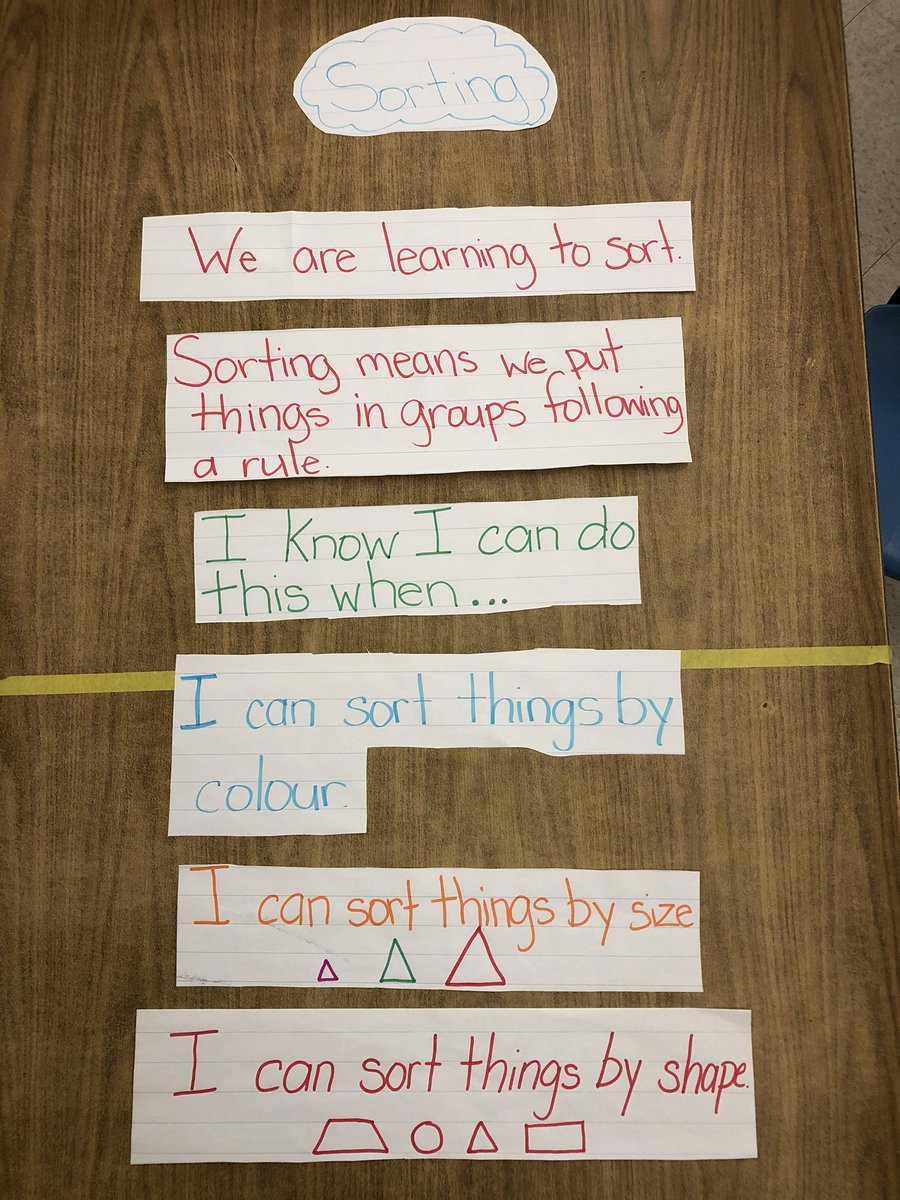 Sorting
We are learning to sort.
Sorting means we put
things in groups following
a rule.
I know I can do
this when...
I can sort things by
colour.
I can sort things by size
I can sort things by shape.